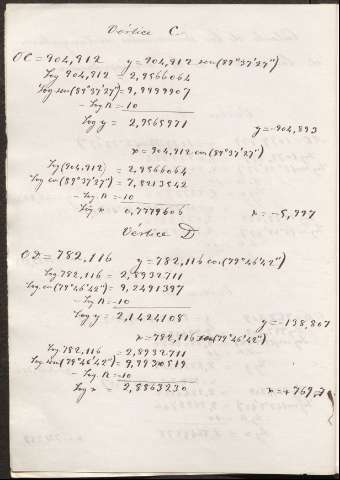 Vértice C.
OC = 904,912 y = 904,912 sen(89°37'27")
Log 904,912 = 2,9566064
Log sen(89°37'27") = 9,9999907
- Log R = -10
Log y = 2,9565971
y = -904,893
x = 904,912 cos(89°37'27")
Log(904,912) = 2,9566064
Log cos(89°37'27") = 7,8213542
- Log R = -10
Log x = 0,7779606
x = -5,997
Vértice D
OD = 782,116 y = 782,116 cos(79°46'42")
Log 782,116 = 2,8932711
Log cos(79°46'42") = 9,2491397
- Log R = -10
Log y = 2,1424108
y = -138,807
x = 782,116 sen(79°46'42")
Log 782,116 = 2,8932711
Log sen(79°46'42") = 9,9930519
- Log R = -10
Log x = 2,8863230
x = +769,7